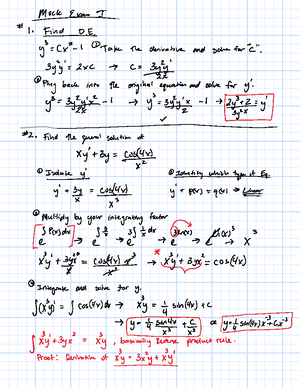 Mock Exam I
#1. Find D.E.
y³ = Cx² - 1 ① Take the derivative and solve for "C".
3y²y' = 2xC → C = 3y²y'/2x
② Plug back into the original equation and solve for y'.
y³ = 3y²y'x²/2x - 1 → y³ = 3y²y'x/2 - 1 → 2y³+2/3y²x = y'
#2. Find the general solution of
xy' + 3y = cos(4x)/x²
① Isolate y' ② Identify which type of Eq.
y' + 3y/x = cos(4x)/x³ y' + p(x) = q(x) → Linear
③ Multiply by your integrating factor
e^∫P(x)dx → e^∫3/x → e^3∫1/x dx → e^3ln(x) → e^ln(x)³ → x³
x³y' + 3yx³/x = cos(4x)/x³ · x³ → x³y' + 3yx² = cos(4x)
④ Integrate and solve for y.
∫(x³y)' = ∫cos(4x)dx → x³y = 1/4 sin(4x) + C
→ y = 1/4 sin4x/x³ + C/x³ or y = 1/4 sin(4x)x⁻³ + Cx⁻³
∫x³y' + 3yx² = x³y, basically reverse product rule.
Proof: Derivative of x³y = 3x²y + x³y'